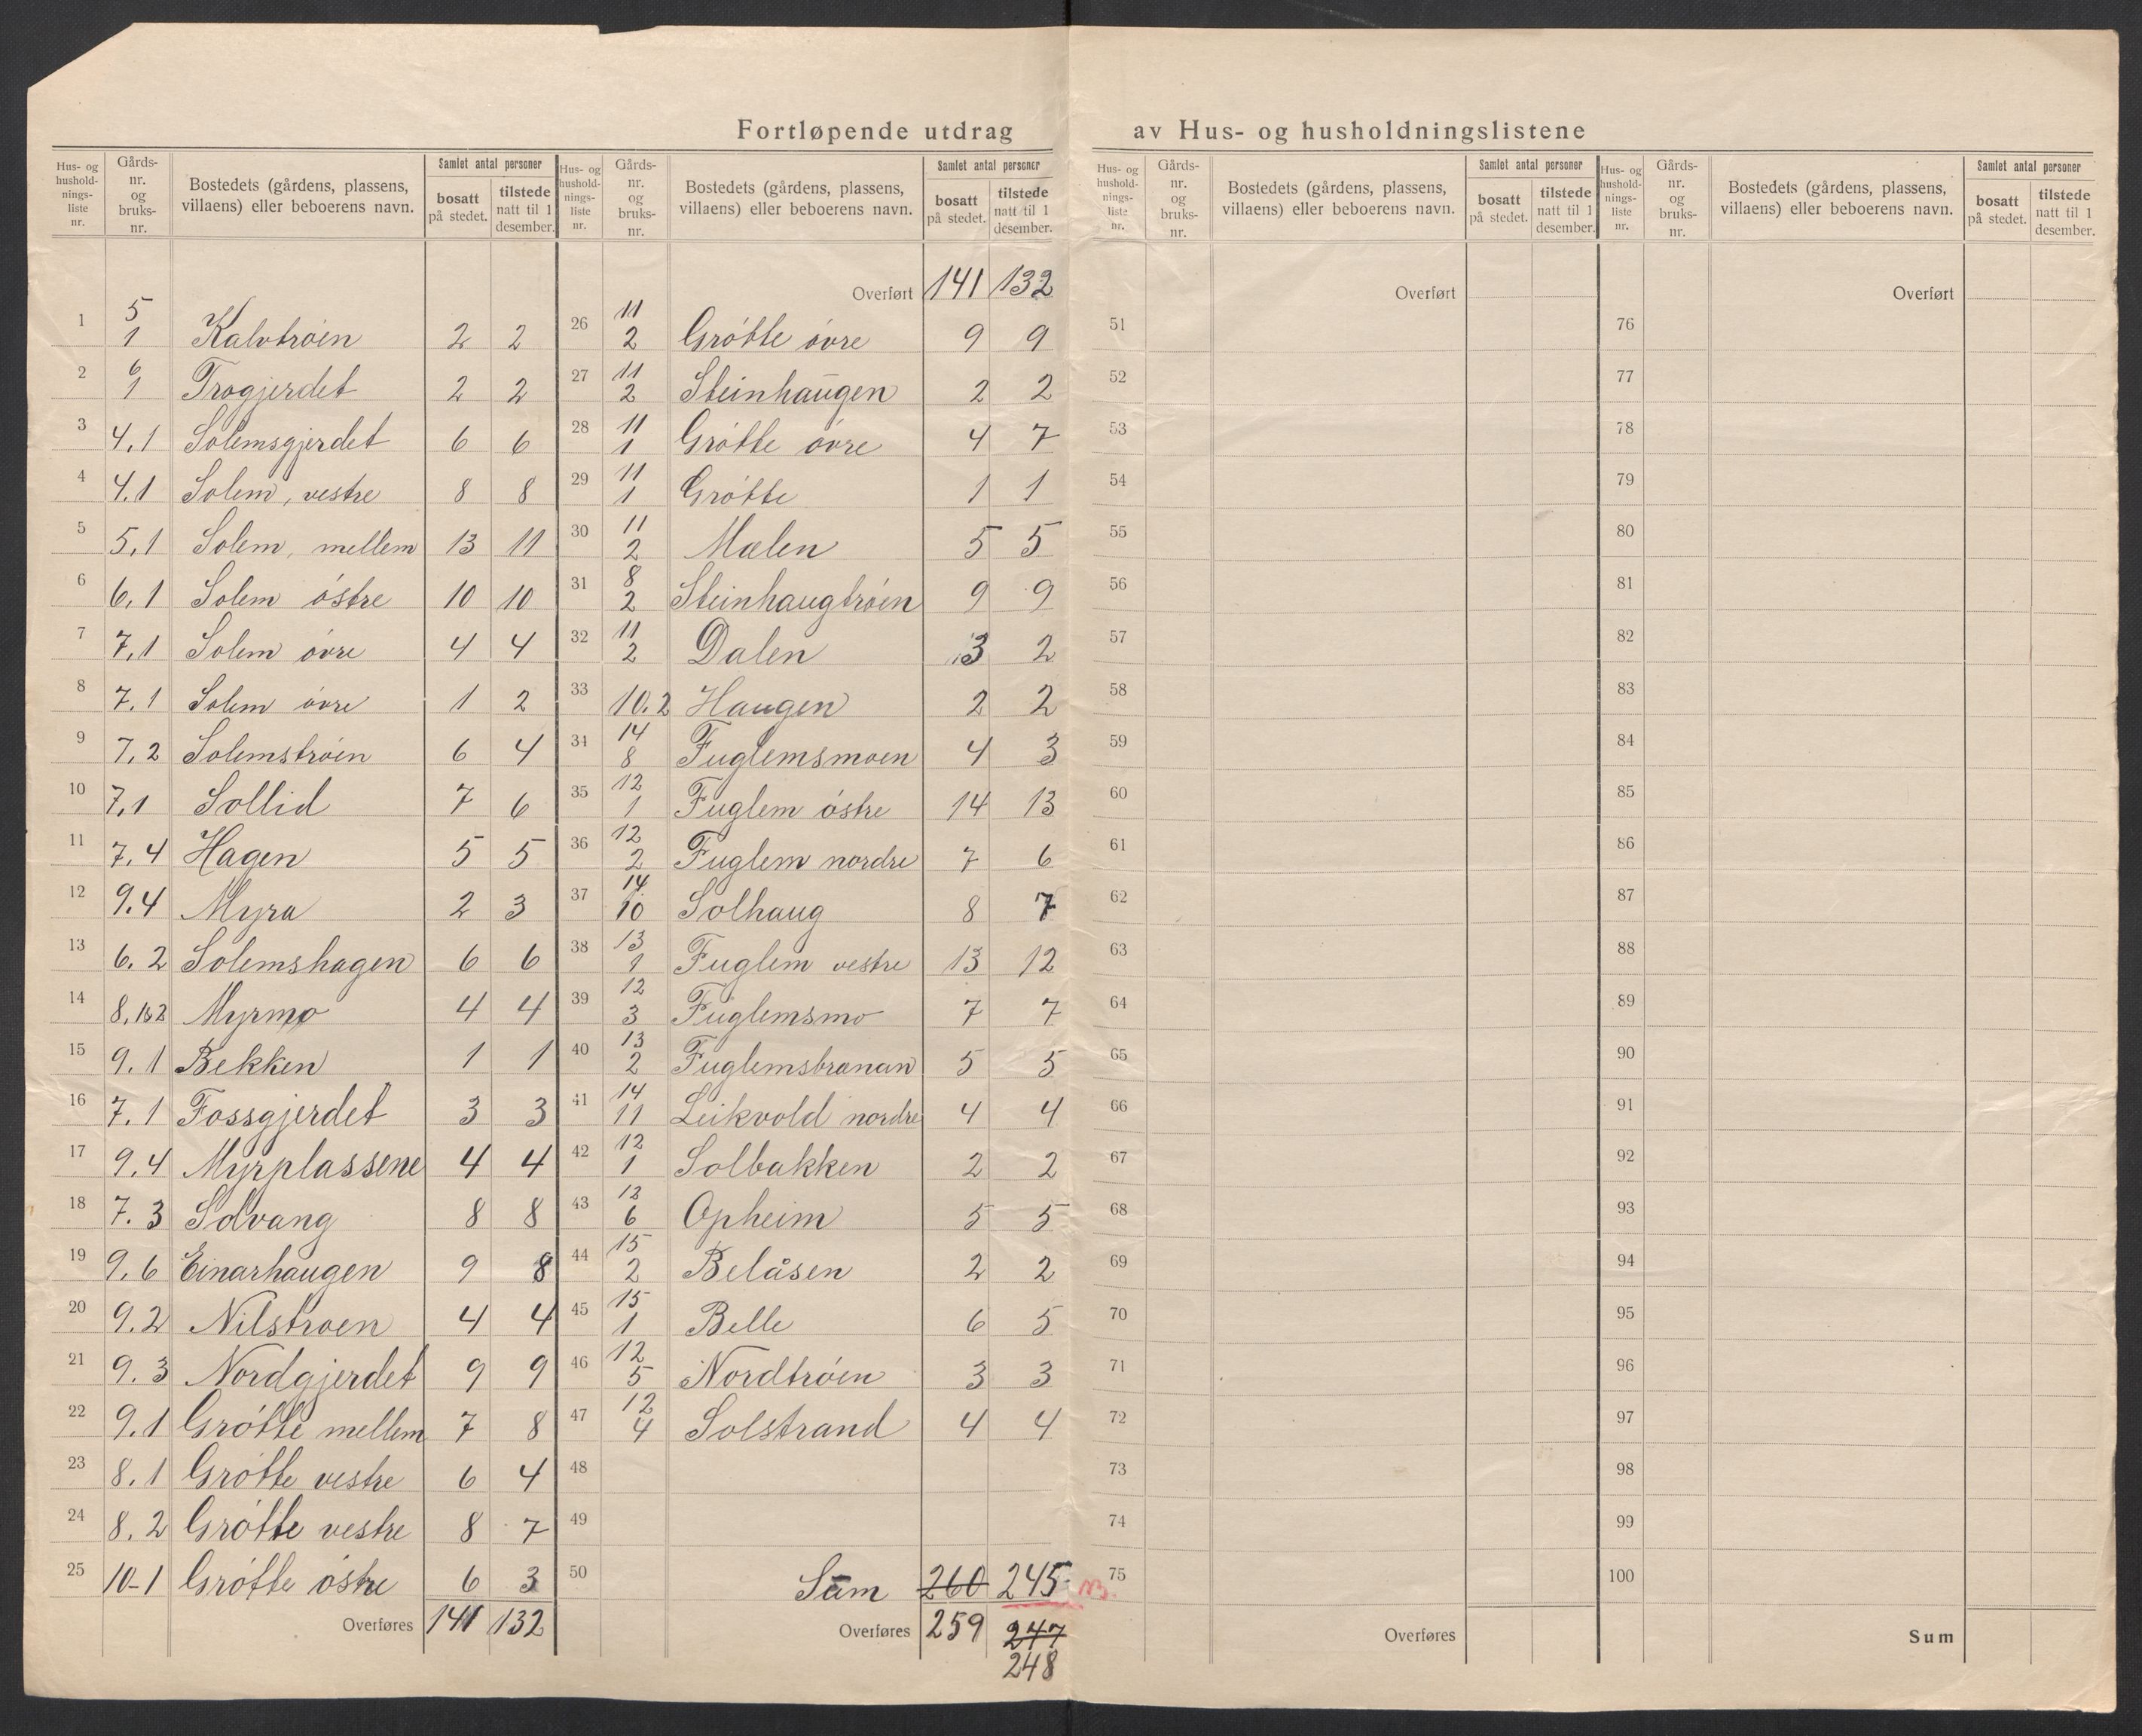 Fortløpende utdrag av Hus- og husholdningslistene
Hus- og hushold-nings-liste nr. Gårds-nr. og bruks-nr. Bostedets (gårdens, plassens, villaens) eller beboerens navn. Samlet antal personer bosatt på stedet. tilstede natt til 1 desember.
1 5 1 Kalvtrøen 2 2
2 6 1 Trøgjerdet 2 2
3 4.1 Solemsgjerdet 6 6
4 4.1 Solem, vestre 8 8
5 5.1 Solem, mellem 13 11
6 6.1 Solem østre 10 10
7 7.1 Solem øvre 4 4
8 7.1 Solem øvre 1 2
9 7.2 Solemstrøen 6 4
10 7.1 Sollid 7 6
11 7.4 Hagen 5 5
12 9.4 Myra 2 3
13 6.2 Solemshagen 6 6
14 8.1&2 Myrmo 4 4
15 9.1 Bekken 1 1
16 7.1 Fossgjerdet 3 3
17 9.4 Myrplassene 4 4
18 7.3 Solvang 8 8
19 9.6 Einarhaugen 9 8
20 9.2 Nilstroen 4 4
21 9.3 Nordgjerdet 9 9
22 9.1 Grøtte mellem 7 8
23 8.1 Grøtte vestre 6 4
24 8.2 Grøtte vestre 8 7
25 10-1 Grøtte østre 6 3
Overføres 141 132
Hus- og hushold-nings-liste nr. Gårds-nr. og bruks-nr. Bostedets (gårdens, plassens, villaens) eller beboerens navn. Samlet antal personer bosatt på stedet. tilstede natt til 1 desember.
Overført 141 132
26 11 2 Grøtte øvre 9 9
27 11 2 Steinhaugen 2 2
28 11 1 Grøtte øvre 4 7
29 11 1 Grøtte 1 1
30 11 2 Mælen 5 5
31 8 2 Steinhaugtrøen 9 9
32 11 2 Dalen 3 2
33 10.2 Haugen 2 2
34 14 8 Fuglemsmoen 4 3
35 12 1 Fuglem østre 14 13
36 12 2 Fuglem nordre 7 6
37 14 10 Solhaug 8 7
38 13 1 Fuglem vestre 13 12
39 12 3 Fuglemsmo 7 7
40 13 2 Fuglemstranan 5 5
41 14 11 Leikvold nordre 4 4
42 12 1 Solbakken 2 2
43 12 6 Opheim 5 5
44 15 2 Belåsen 2 2
45 15 1 Belle 6 5
46 12 5 Nordtrøen 3 3
47 12 4 Solstrand 4 4
48
49
50 Sum 260 245 NB.
Overføres 259 247
248
Hus- og hushold-nings-liste nr. Gårds-nr. og bruks-nr. Bostedets (gårdens, plassens, villaens) eller beboerens navn. Samlet antal personer bosatt på stedet. tilstede natt til 1 desember.
Overført
51
52
53
54
55
56
57
58
59
60
61
62
63
64
65
66
67
68
69
70
71
72
73
74
75
Overføres
Hus- og hushold-nings-liste nr. Gårds-nr. og bruks-nr. Bostedets (gårdens, plassens, villaens) eller beboerens navn. Samlet antal personer bosatt på stedet. tilstede natt til 1 desember.
Overført
76
77
78
79
80
81
82
83
84
85
86
87
88
89
90
91
92
93
94
95
96
97
98
99
100
Sum